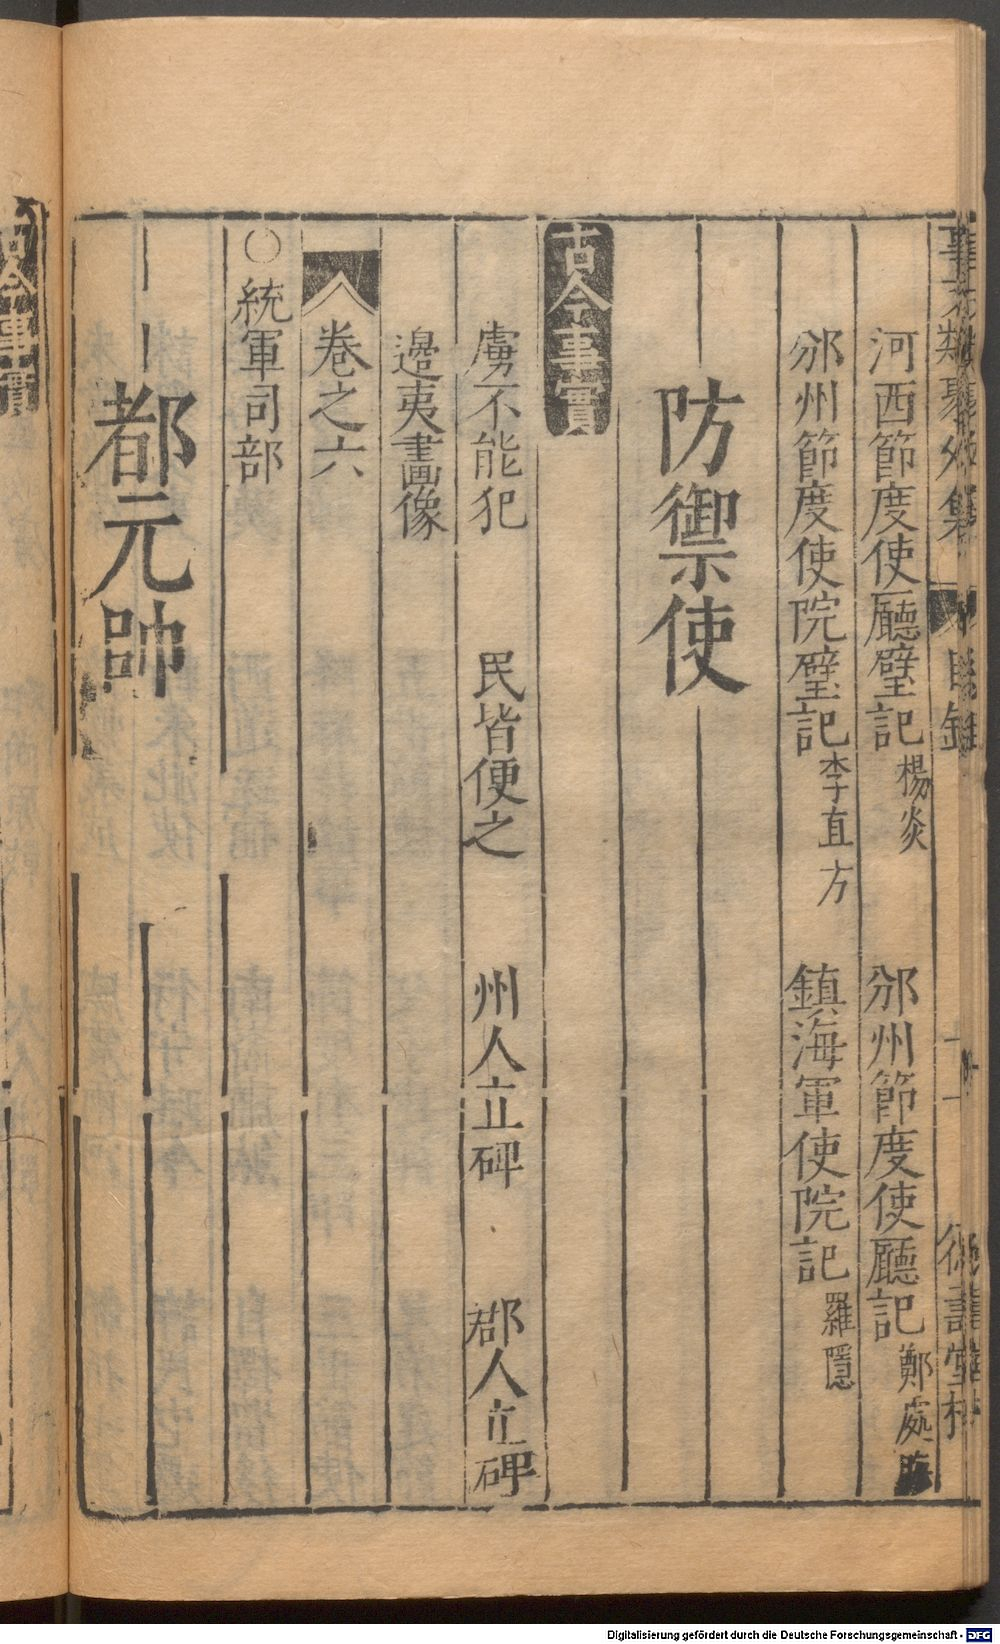 事文類聚外集 目錄 十一 德壽堂梓
河西節度使廳壁記 楊炎 邠州節度使廳記 鄭處晦
邠州節度使院壁記 李直方 鎮海軍使院記 羅隱
防禦使
古今事實
虜不能犯 民皆便之 州人立碑 郡人立碑
邊夷畫像
卷之六
○統軍司部
都元帥
古今事實
Digitalisierung gefördert durch die Deutsche Forschungsgemeinschaft - DFG